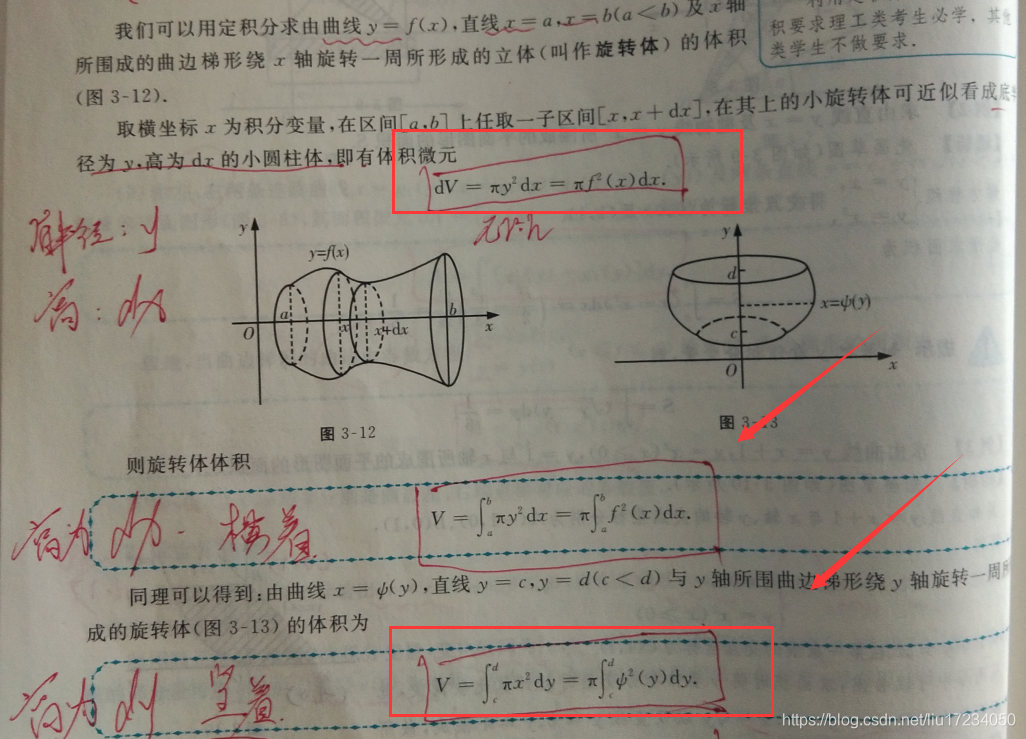 我们可以用定积分求由曲线 y = f(x),直线 x = a, x = b(a < b) 及 x 轴
所围成的曲边梯形绕 x 轴旋转一周所形成的立体(叫作旋转体) 的体积
(图 3-12).
积要求理工类考生必学,其他
类学生不做要求.
取横坐标 x 为积分变量,在区间[a,b]上任取一子区间[x,x+dx],在其上的小旋转体可近似看成底半
径为 y,高为 dx 的小圆柱体,即有体积微元
dV = πy²dx = πf²(x)dx.
半径: y
高: dx
y
y=f(x)
a
x
x+dx
b
O
x
y
d
x=ψ(y)
c
O
x
图 3-12
图 3-13
则旋转体体积
V = ∫ₐᵇ πy²dx = π∫ₐᵇ f²(x)dx.
高为 dx - 横着.
同理可以得到:由曲线 x = ψ(y),直线 y = c,y = d(c < d) 与 y 轴所围曲边梯形绕 y 轴旋转一周所
成的旋转体(图 3-13) 的体积为
V = ∫_c^d πx²dy = π∫_c^d ψ²(y)dy.
高为 dy 竖着.
https://blog.csdn.net/liu17234050